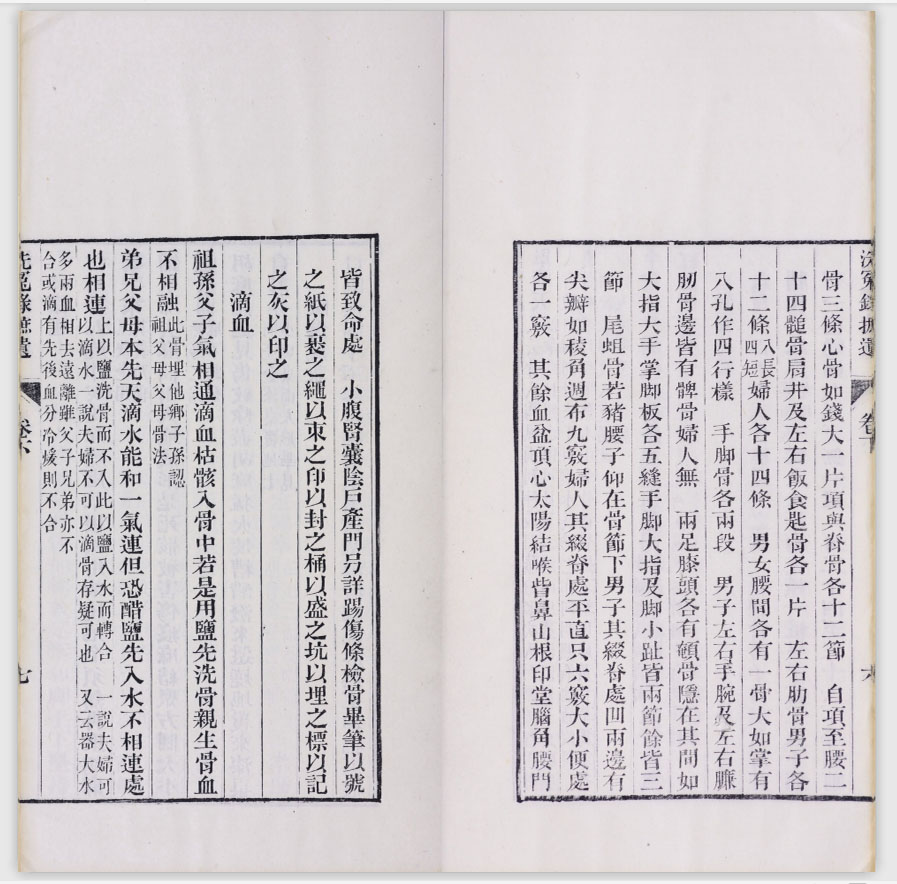 洗冤錄摭遺 卷
骨三條心骨如錢大一片項與脊骨各十二節 自項至腰二
十四髓骨肩井及左右飯食匙骨各一片 左右肋骨男子各
十二條八長四短婦人各十四條 男女腰間各有一骨大如掌有
八孔作四行樣 手脚骨各兩段 男子左右手腕及左右臁
肕骨邊皆有髀骨婦人無 兩足膝頭各有顊骨隱在其間如
大指大手掌脚板各五縫手脚大指及脚小趾皆兩節餘皆三
節 尾蛆骨若豬腰子仰在骨節下男子其綴脊處凹兩邊有
尖瓣如稜角週布九竅婦人其綴脊處平直只六竅大小便處
各一竅 其餘血盆頂心太陽結喉眥鼻山根印堂腦角腰門
皆致命處 小腹腎囊陰戶產門另詳踢傷條檢骨畢筆以號
之紙以裹之繩以束之印以封之桶以盛之坑以埋之標以記
之灰以印之
滴血
祖孫父子氣相通滴血枯骸入骨中若是用鹽先洗骨親生骨血
不相融此骨埋他鄉子孫認祖父母父母骨法
弟兄父母本先天滴水能和一氣連但恐醋鹽先入水不相連處
也相連上以鹽洗骨而不入此以鹽入水而轉合 一說夫婦可以滴水一說夫婦不可以滴骨存疑可也 又云器大水
多兩血相去遠離雖父子兄弟亦不合或滴有先後血分冷煖則不合
洗冤錄摭遺 卷 七